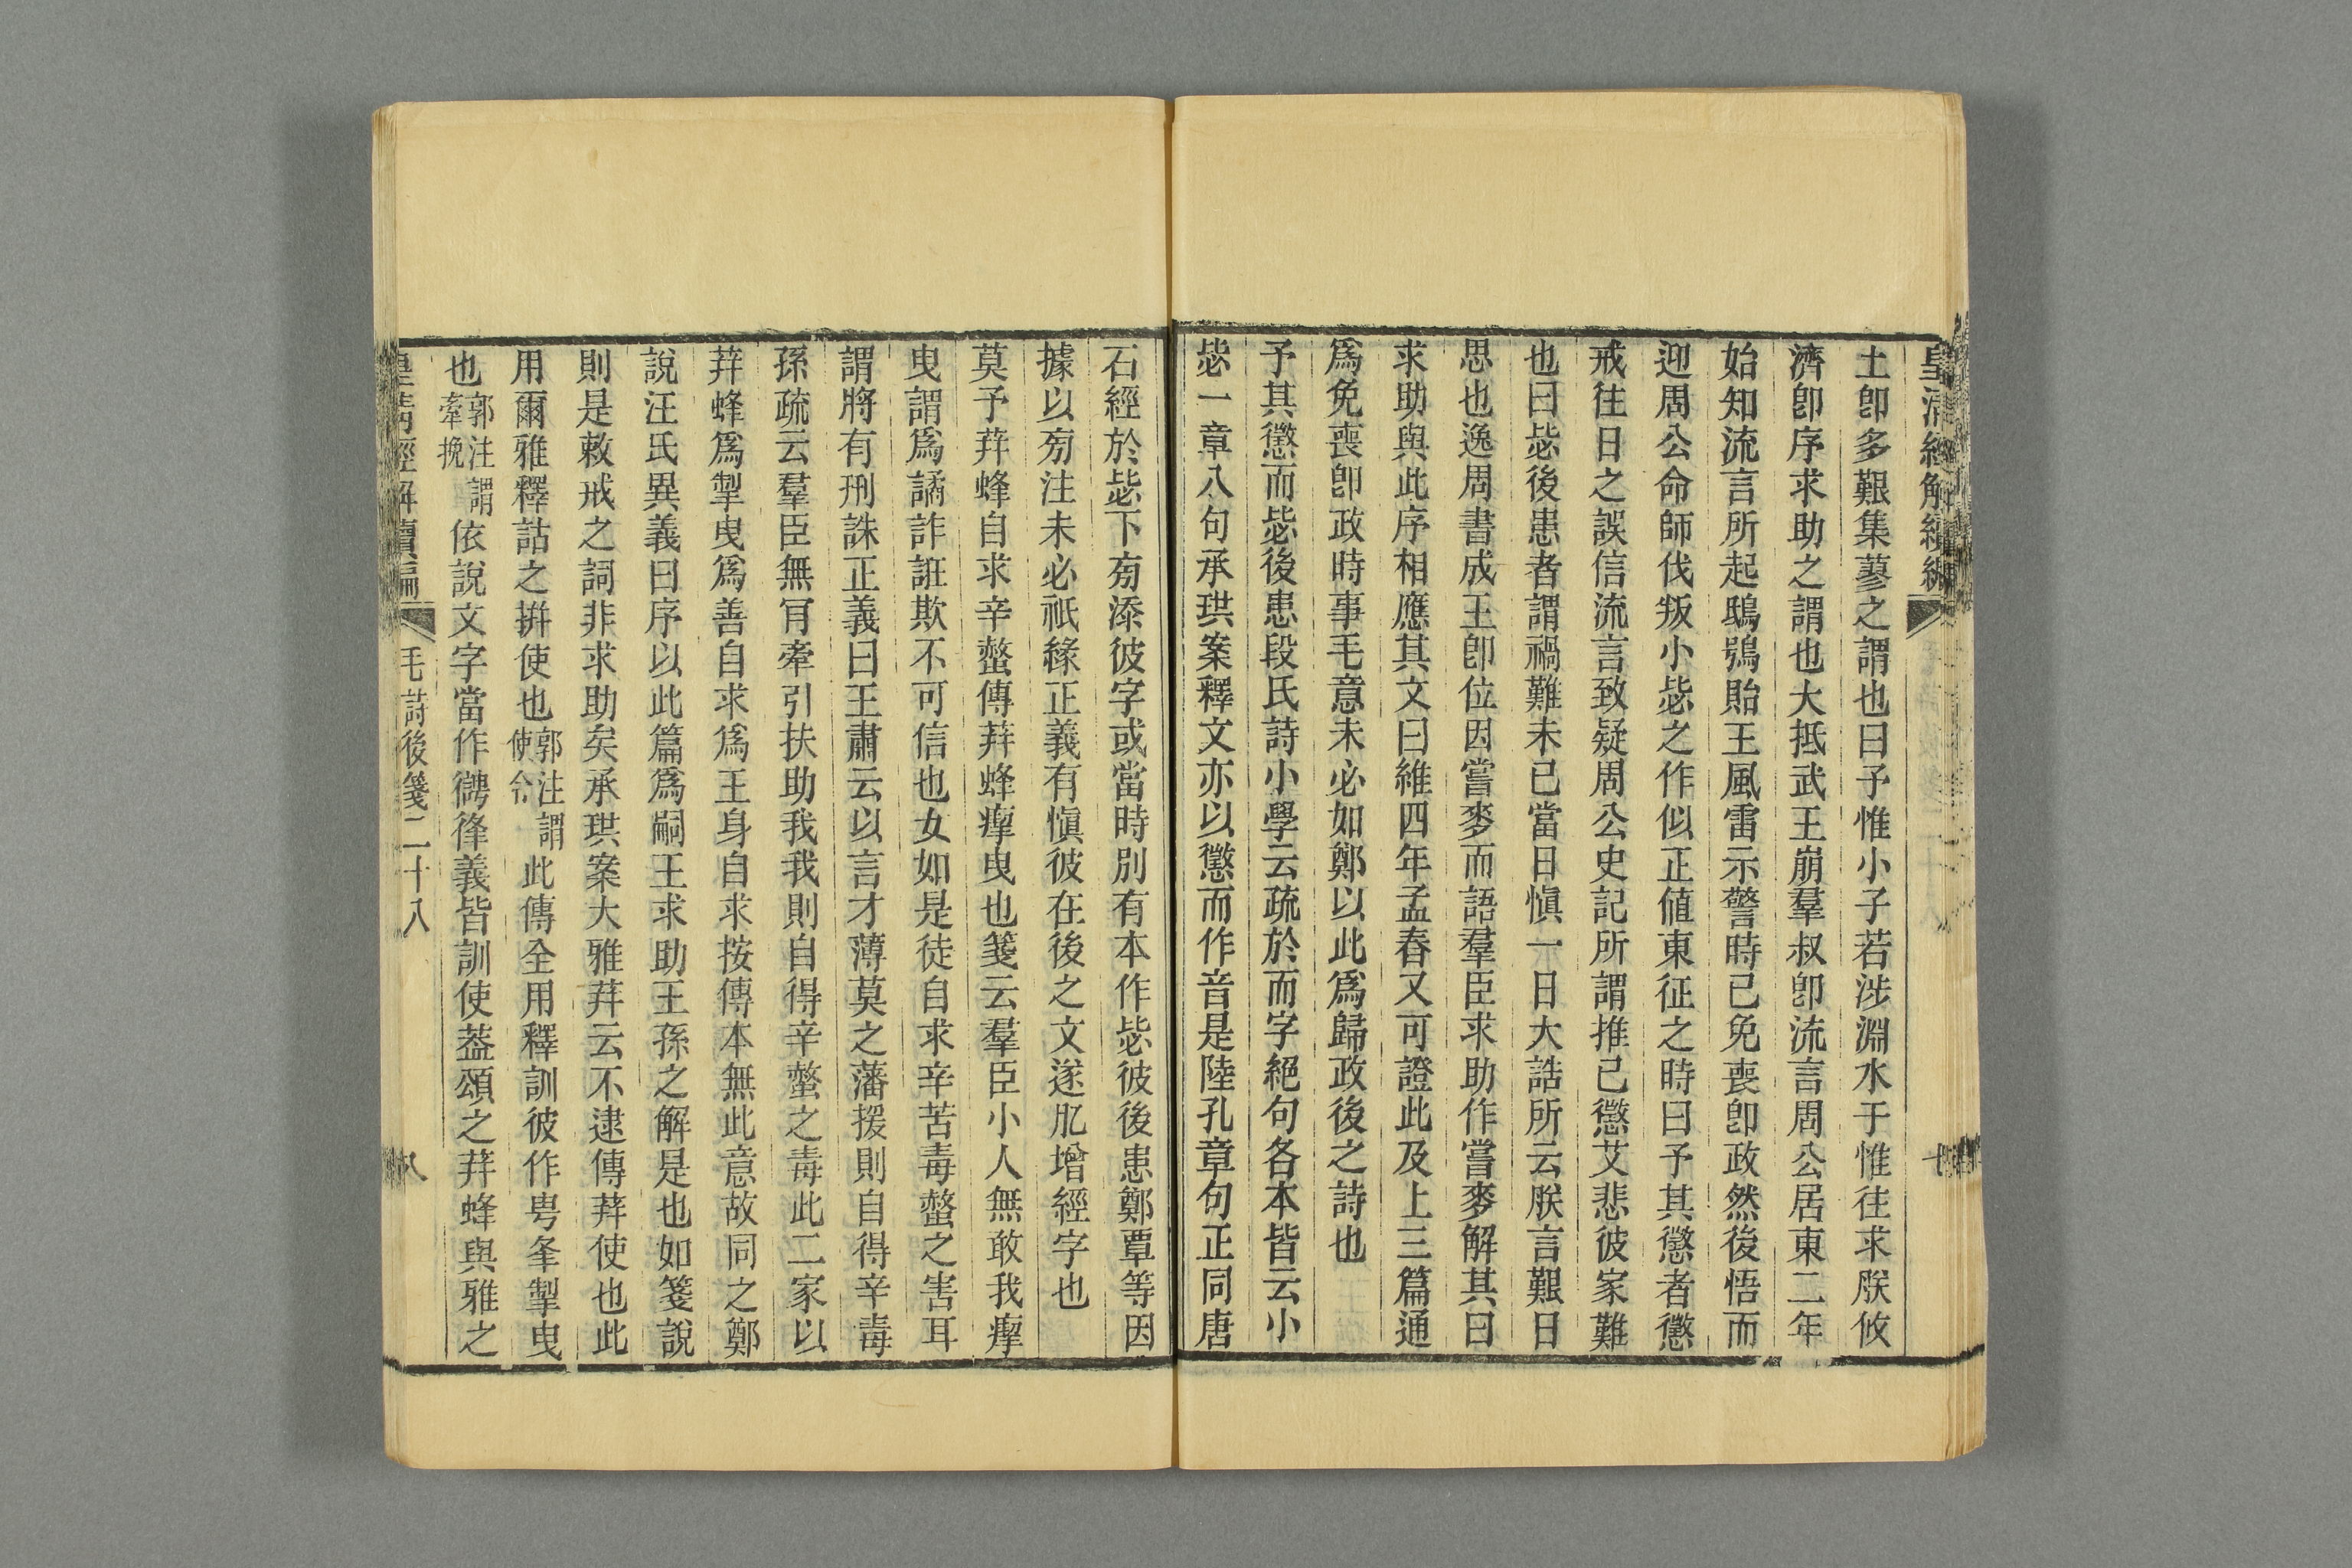 皇清經解續編
土卽多艱集蓼之謂也曰予惟小子若涉淵水于惟往求朕攸
濟卽序求助之謂也大抵武王崩羣叔卽流言周公居東二年
始知流言所起鴟鴞貽王風雷示警時已免喪卽政然後悟而
迎周公命師伐叛小毖之作似正値東征之時曰予其懲者懲
戒往日之誤信流言致疑周公史記所謂推己懲艾悲彼家難
也曰毖後患者謂禍難未已當日愼一日大誥所云朕言艱日
思也逸周書成王卽位因嘗麥而語羣臣求助作嘗麥解其曰
求助與此序相應其文曰維四年孟春又可證此及上三篇通
爲免喪卽政時事毛意未必如鄭以此爲歸政後之詩也
予其懲而毖後患段氏詩小學云疏於而字絕句各本皆云小
毖一章八句承珙案釋文亦以懲而作音是陸孔章句正同唐
石經於毖下㫄添彼字或當時別有本作毖彼後患鄭覃等因
據以㫄注未必祇緣正義有愼彼在後之文遂肊增經字也
莫予荓蜂自求辛螫傳荓蜂瘳曳也箋云羣臣小人無敢我瘳
曳謂爲譎詐誑欺不可信也女如是徒自求辛苦毒螫之害耳
謂將有刑誅正義曰王肅云以言才薄莫之藩援則自得辛毒
孫疏云羣臣無肎牽引扶助我我則自得辛螫之毒此二家以
荓蜂爲掣曳爲善自求爲王身自求按傳本無此意故同之鄭
說汪氏異義曰序以此篇爲嗣王求助王孫之解是也如箋說
則是敕戒之詞非求助矣承珙案大雅荓云不逮傳荓使也此
用爾雅釋詁之拼使也郭注謂使令此傳全用釋訓彼作甹夆掣曳
也郭注謂牽挽依說文字當作德夆義皆訓使蓋頌之荓蜂與雅之
皇淸經解續編　毛詩後箋二十八　八